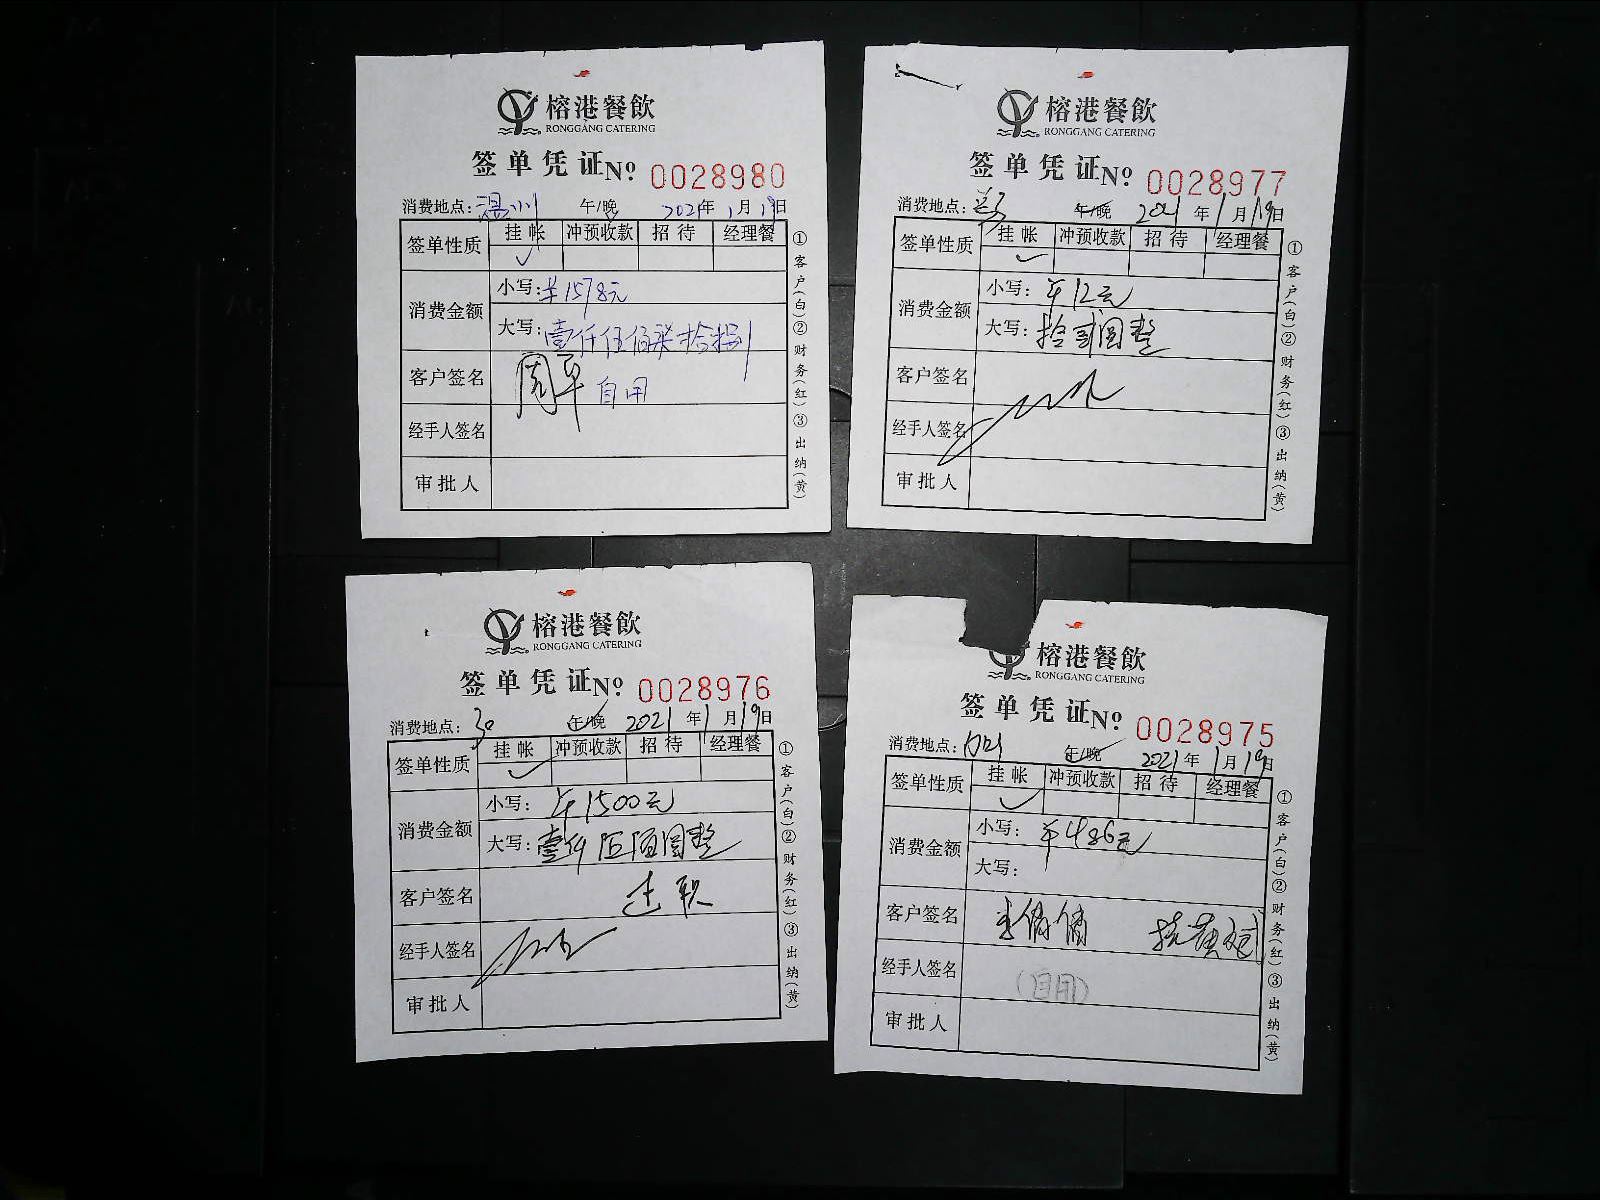 榕港餐飲
RONGGANG CATERING
签单凭证№ 0028980
消费地点：温州 午/晚 2021年1月19日
签单性质 挂帐 冲预收款 招待 经理餐
✓
消费金额
小写：¥1578元
大写：壹仟伍佰柒拾捌
客户签名 周平 自用
经手人签名
审批人
①客户(白)②财务(红)③出纳(黄)
榕港餐飲
RONGGANG CATERING
签单凭证№ 0028977
消费地点： 午/晚 2021年1月19日
签单性质 挂帐 冲预收款 招待 经理餐
✓
消费金额
小写：¥12元
大写：拾贰圆整
客户签名
经手人签名
审批人
①客户(白)②财务(红)③出纳(黄)
榕港餐飲
RONGGANG CATERING
签单凭证№ 0028976
消费地点：30 午/晚 2021年1月19日
签单性质 挂帐 冲预收款 招待 经理餐
✓
消费金额
小写：¥1500元
大写：壹仟伍佰圆整
客户签名
经手人签名
审批人
①客户(白)②财务(红)③出纳(黄)
榕港餐飲
RONGGANG CATERING
签单凭证№ 0028975
消费地点： 午/晚 2021年1月19日
签单性质 挂帐 冲预收款 招待 经理餐
✓
消费金额
小写：¥486元
大写：
客户签名 李倩倩
经手人签名 (自用)
审批人
①客户(白)②财务(红)③出纳(黄)